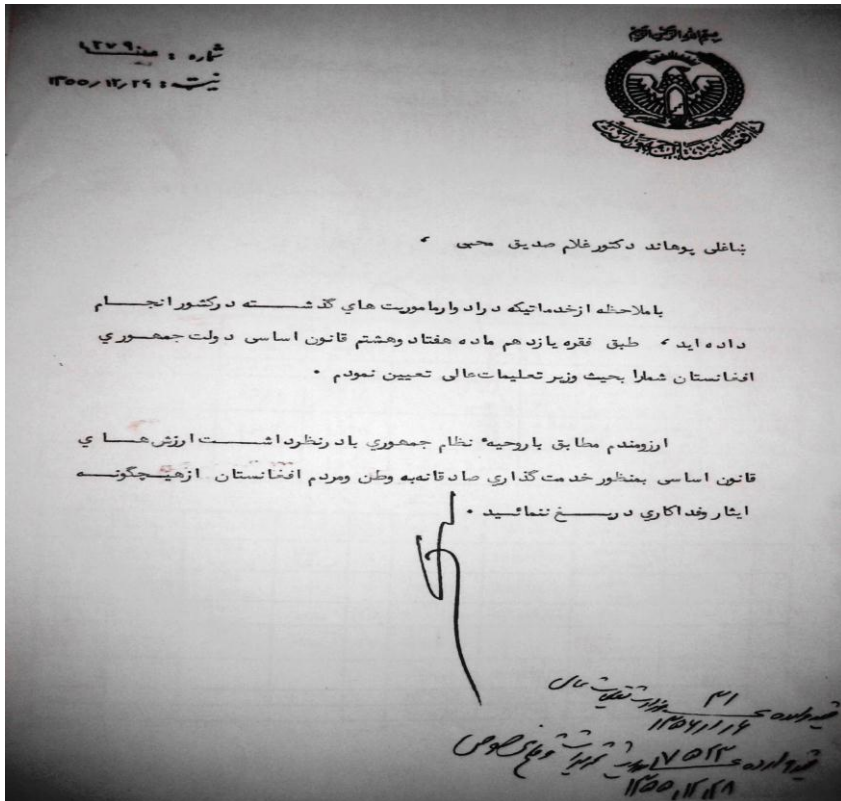 بسم الله الرحمن الرحیم
شماره : ۴۲۷۹
نیټه : ۱۳۵۵٫۱۲٫۲۴
دافغانستان جمهوری دولت
ښاغلی پوهاند دکتور غلام صدیق محبی ،
باملاحظه ازخدماتیکه در ادوار ماموریت هاي گذشته درکشور انجام
داده اید ، طبق فقره یازدهم ماده هفتاد وهشتم قانون اساسی دولت جمهوري
افغانستان شمارا بحیث وزیر تعلیمات عالی تعیین نمودم ٠
ارزومندم مطابق با روحیهٔ نظام جمهوري بادرنظرداشت ارزش هاي
قانون اساسی بمنظور خدمت گذاري صادقانه به وطن ومردم افغانستان ازهیچگونه
ایثار وفداکاري دریغ ننمائید ٠
قید وارده ۳۱ وزارت تعلیمات عالی
۱۳۵۶/۱/۶
قید وارده ۱۷۵۲۳ مدیریت تحریرات
۱۳۵۵,۱۲,۲۸